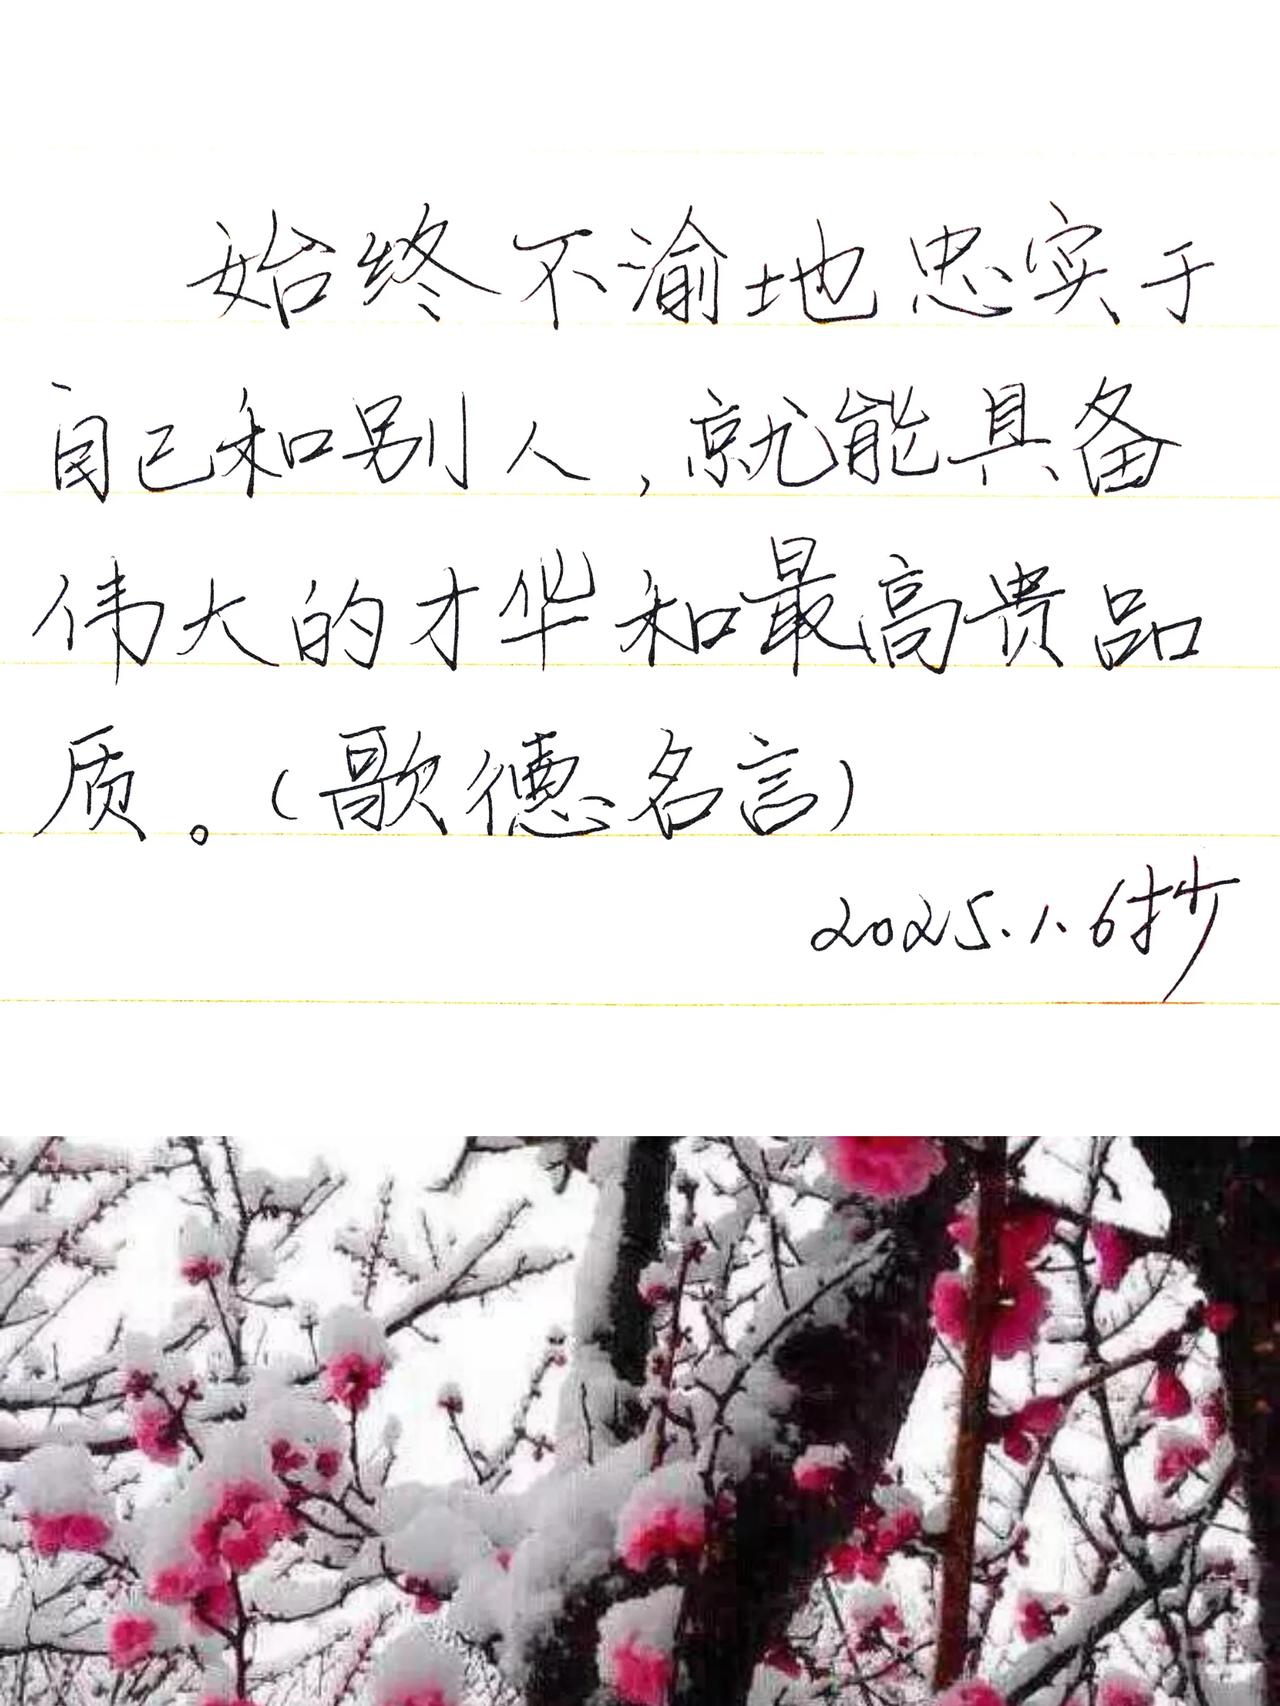 始终不渝地忠实于
自己和别人，就能具备
伟大的才华和最高贵品
质。（歌德名言）
2025.1.6抄